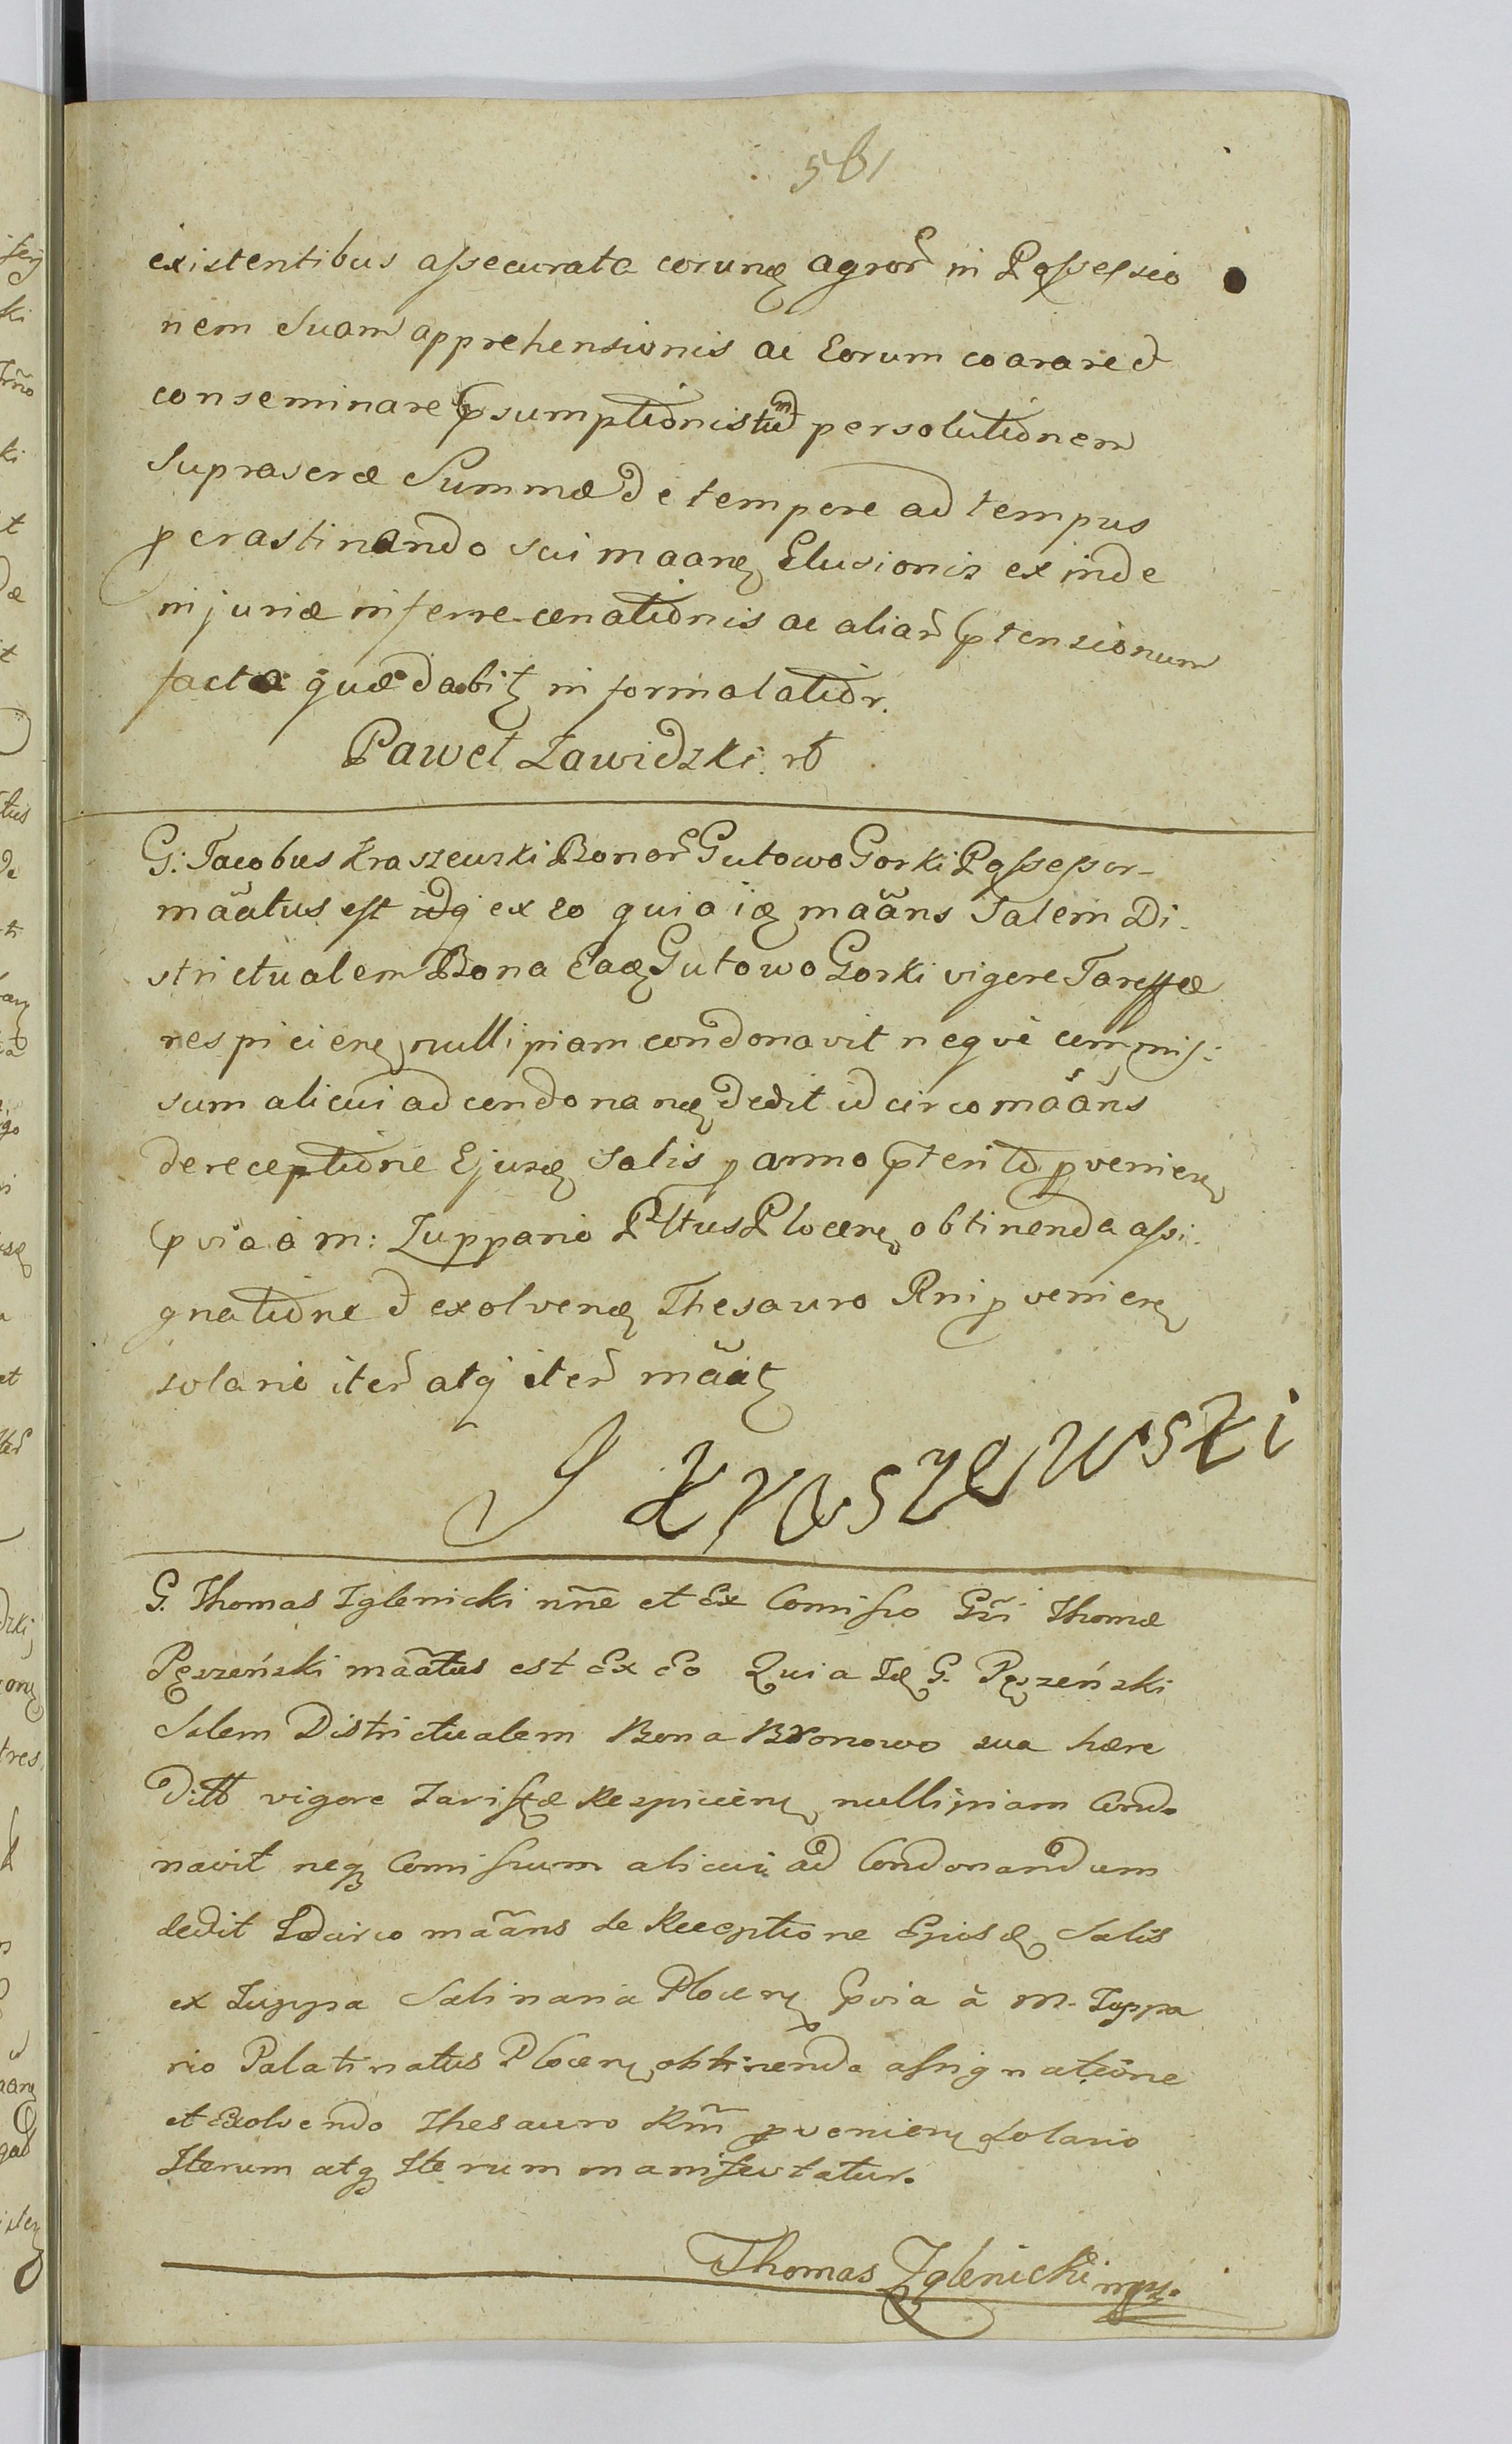 561
existentibus assecurata eorunđ agroȓ in Possessio
nem Suam apprehensionis ac Eorum coarare et
conseminare Psumptionis tum persolutionem
Suprascræ Summæ de tempore ad tempus
pcrastinando sui maanđ Elusionis exinde
injuriæ inferre cenationis ac aliaȓ Ptensionum
facta quæ dabitʒ in formalatior.
Paweł Zawidzki
G: Jacobus Kraszewski Bonoȓ Gutowo Gorki Possessor
mãatus est idq ex eo quia iđ mãans Salem Di
strictualem Bona Eađ Gutowo Gorki vigore Tareffæ
respicienʒ nullipiam condonavit neqve commis:
sum alicui ad condonanđ dedit idcirco mãans
de receptione Ejusđ Salis p anno Pterito pvenienʒ
Pvia a m: Zuppario Pltus Plocenʒ obtinenda assi:
gnatione et exolvenđ Thesauro Rni pvenienʒ
solario iteȓ atq iteȓ mãatʒ
J Kraszewski
G. Thomas Zglenicki nñe et Ex Comisso Gñi Thomæ
Pęszeński mãatus est Ex Eo Quia Iđ G. Pęszeński
Salem Districtualem Bona Bronowo sua hære
ditt vigore Tariffæ Respicienʒ nullipiam Condo
navit neqʒ Comissum alicui ad Condonandum
dedit Idcirco mãans de Receptione Ejusđ Salis
ex Zuppa Salinaria Plocenʒ Pvia à M. Zuppa
rio Palatinatus Plocenʒ obtinenda assignatione
et Exolvendo Thesauro Rñi pvenienʒ Solario
Iterum atqʒ Iterum manifestatur.
Thomas Zglenicki mpr.